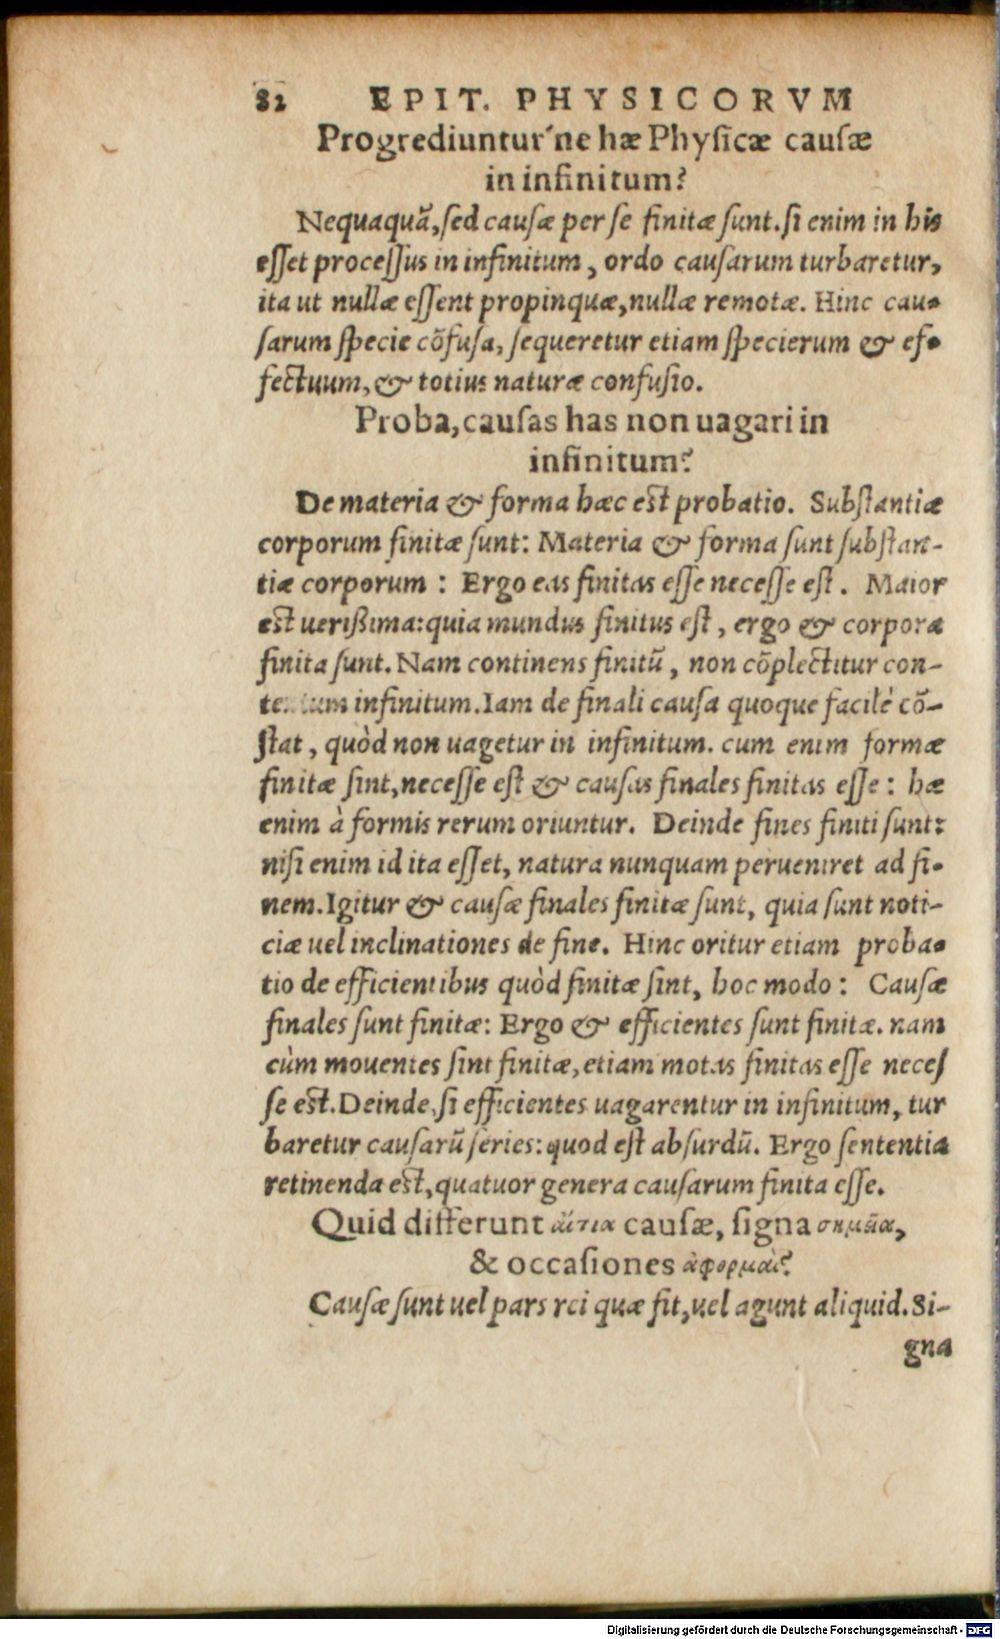 82 EPIT. PHYSICORVM
Progrediuntur'ne hæ Physicæ causæ
in infinitum?
Nequaquã, sed causæ per se finitæ sunt. si enim in his
esset processus in infinitum, ordo causarum turbaretur,
ita ut nullæ essent propinquæ, nullæ remotæ. Hinc cau-
sarum specie cõfusa, sequeretur etiam specierum & ef-
fectuum, & totius naturæ confusio.
Proba, causas has non uagari in
infinitum?
De materia & forma hæc est probatio. Substantiæ
corporum finitæ sunt: Materia & forma sunt substan-
tiæ corporum: Ergo eas finitas esse necesse est. Maior
est uerißima: quia mundus finitus est, ergo & corpora
finita sunt. Nam continens finitũ, non cõplectitur con-
tentum infinitum. Iam de finali causa quoque facilè cõ-
stat, quòd non uagetur in infinitum. cum enim formæ
finitæ sint, necesse est & causas finales finitas esse: hæ
enim à formis rerum oriuntur. Deinde fines finiti sunt:
nisi enim id ita esset, natura nunquam perueniret ad fi-
nem. Igitur & causæ finales finitæ sunt, quia sunt noti-
ciæ uel inclinationes de fine. Hinc oritur etiam proba-
tio de efficientibus quòd finitæ sint, hoc modo: Causæ
finales sunt finitæ: Ergo & efficientes sunt finitæ. nam
cùm mouentes sint finitæ, etiam motas finitas esse neces
se est. Deinde, si efficientes uagarentur in infinitum, tur
baretur causarũ series: quod est absurdũ. Ergo sententia
retinenda est, quatuor genera causarum finita esse.
Quid differunt αἴτια causæ, signa σημεῖα,
& occasiones ἀφορμαὶ?
Causæ sunt uel pars rei quæ fit, uel agunt aliquid. Si-
gna
Digitalisierung gefördert durch die Deutsche Forschungsgemeinschaft - DFG